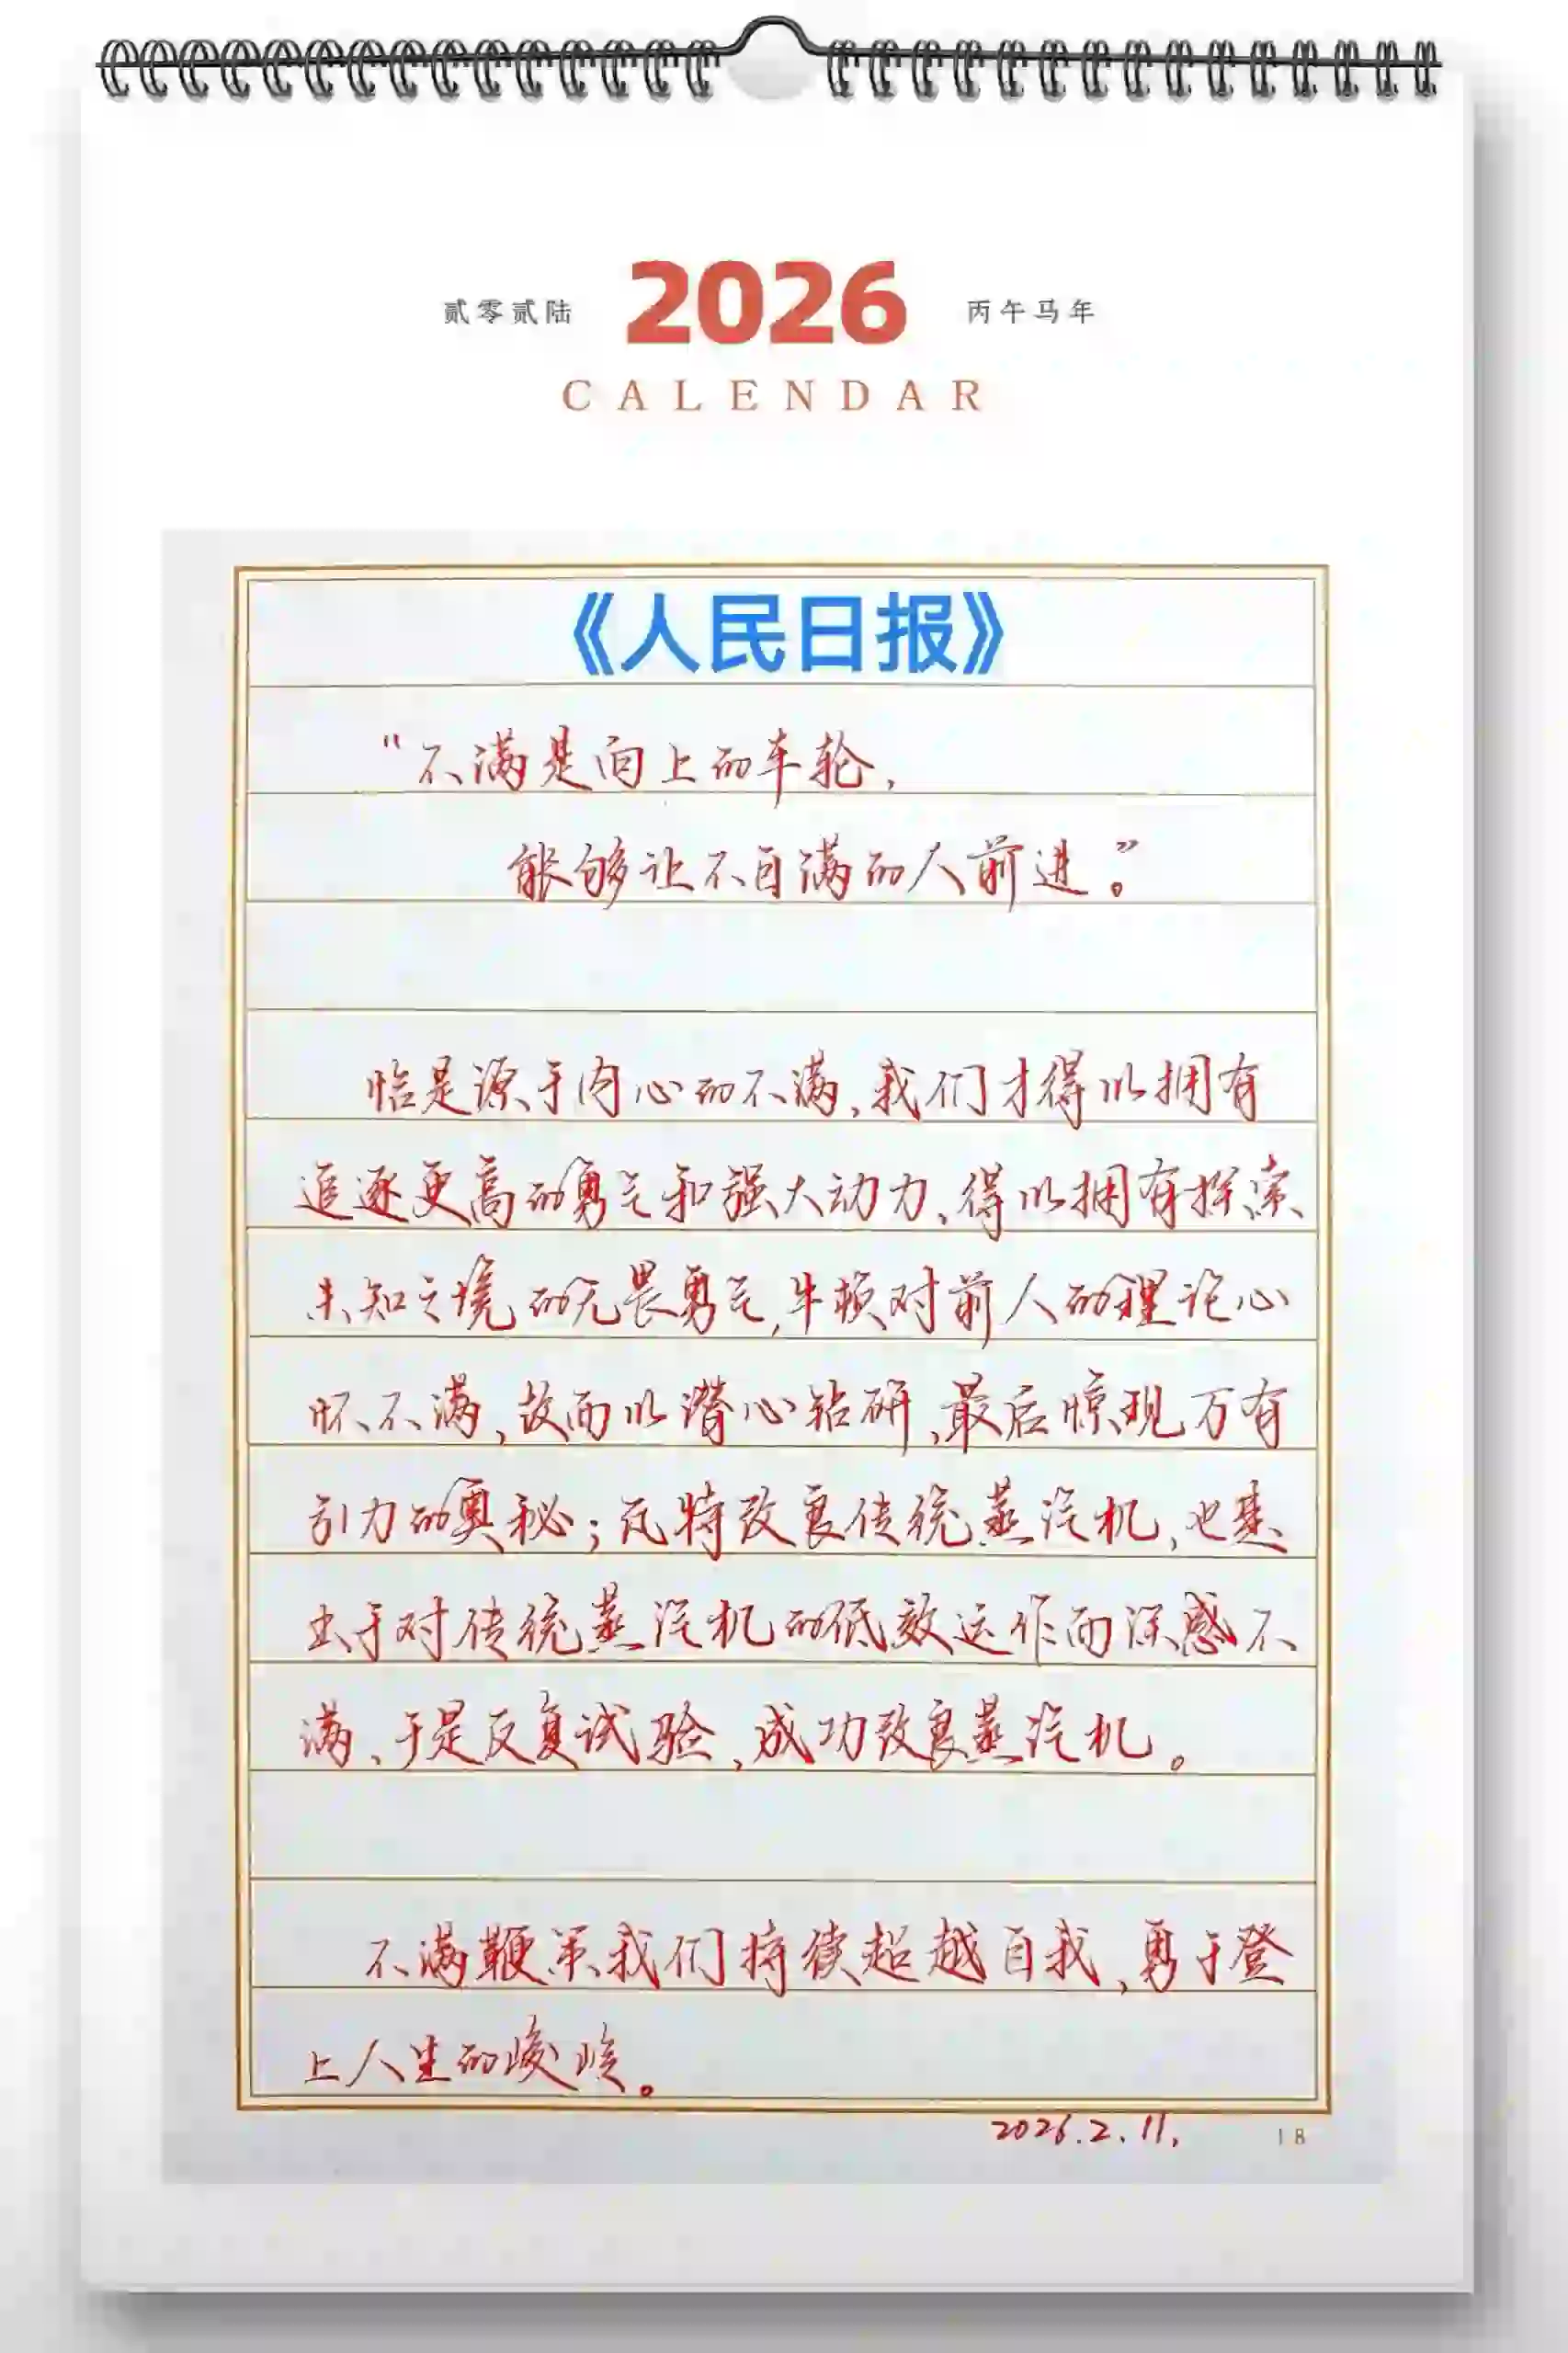 贰零贰陆 2026 丙午马年
CALENDAR
《人民日报》
“不满是向上的车轮，
能够让不自满的人前进。”
恰是源于内心的不满，我们才得以拥有
追逐更高的勇气和强大动力，得以拥有探索
未知之境的无畏勇气，牛顿对前人的理论心
怀不满，故而以潜心钻研，最后惊现万有
引力的奥秘；瓦特改良传统蒸汽机，也是
出于对传统蒸汽机的低效运作而深感不
满、于是反复试验，成功改良蒸汽机。
不满鞭策我们持续超越自我，勇于登
上人生的峻岭。
2026.2.11.
18